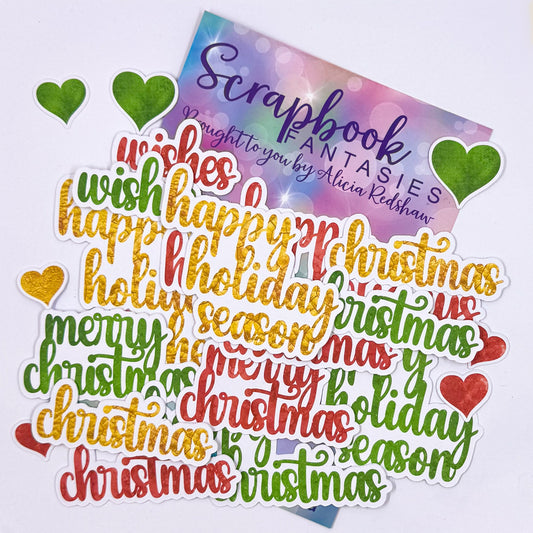 Scrapbook
FANTASIES
Brought to you by Alicia Redshaw
wishes
wish
happy
holiday
season
happ
holi
h
happ
christmas
us
christmas
merry
christmas
christmas
christmas
holiday
season
christmas
christmas
christmas